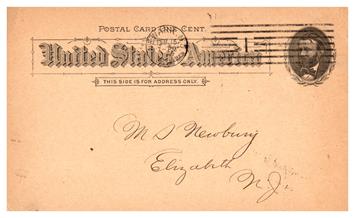 POSTAL CARD ONE CENT.
United States America
THIS SIDE IS FOR ADDRESS ONLY.
1
M S Newbury
Elizabeth
N.J.